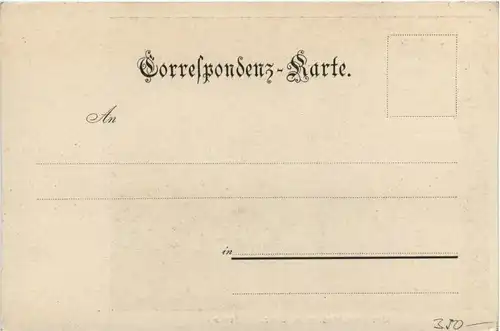 Correspondenz-Karte.
An
in
350—